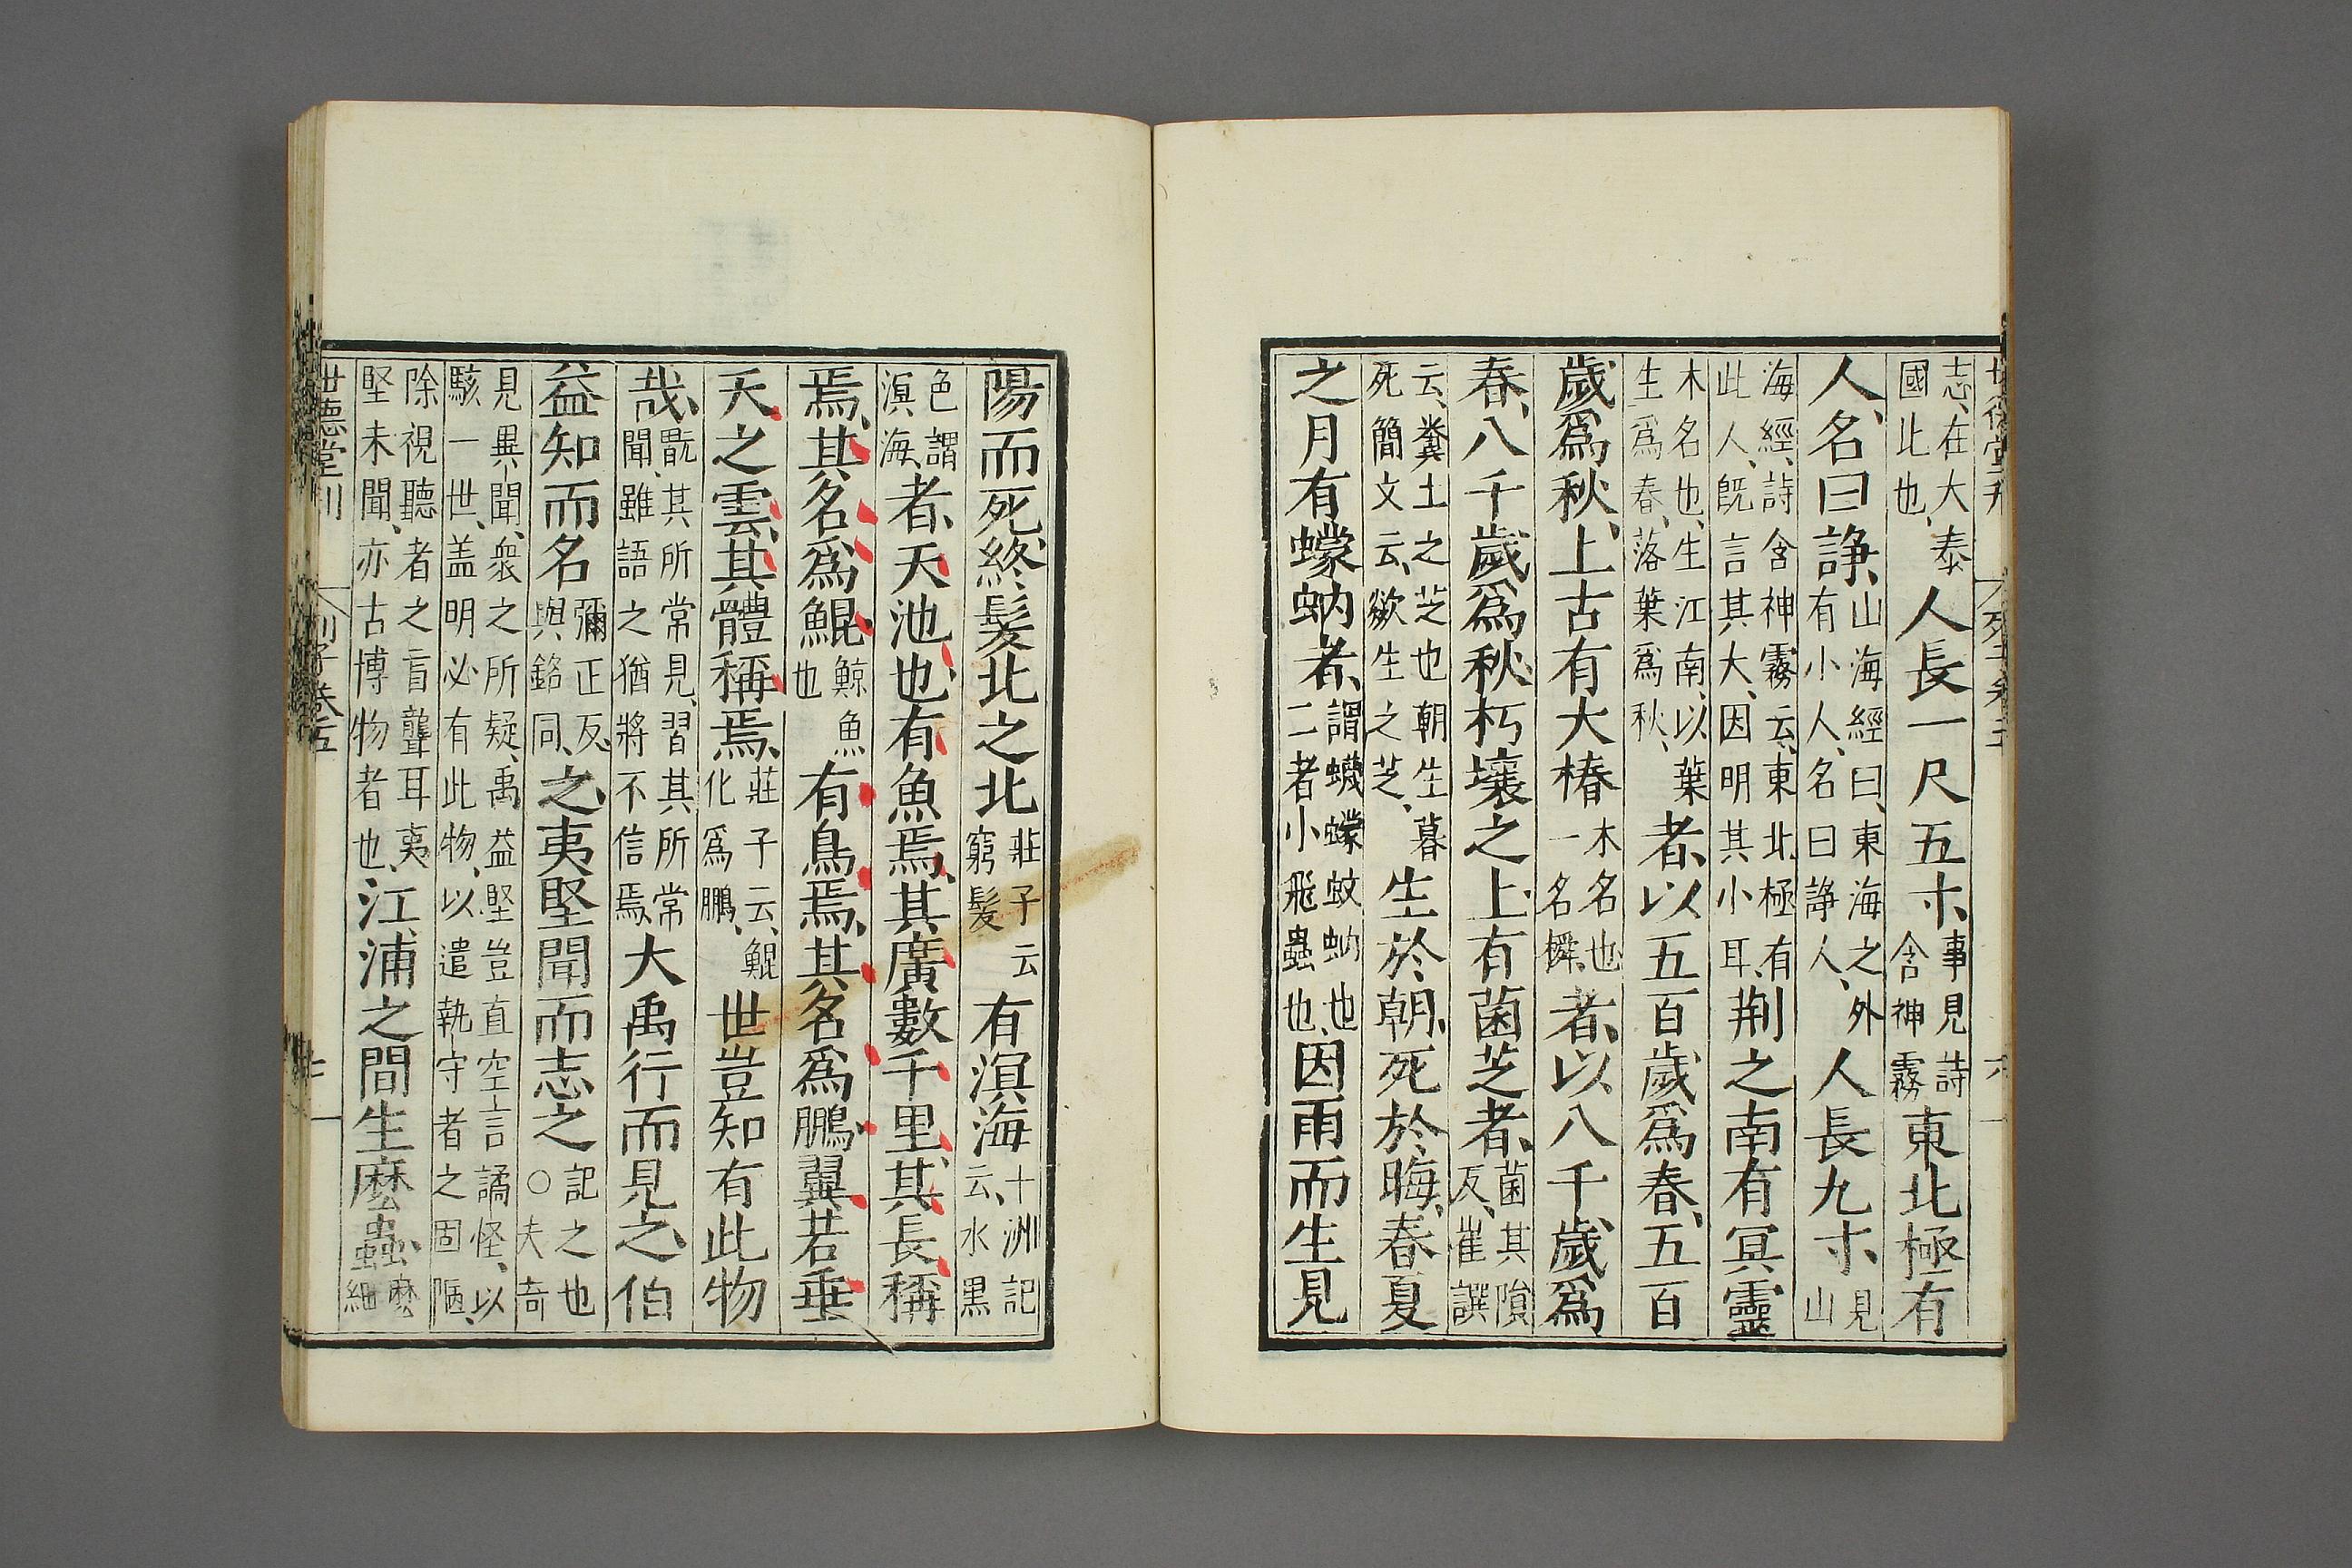 志、在大秦國此也、人長一尺五寸、事見詩含神霧東北極有
人、名曰諍、山海經曰、東海之外有小人、名曰諍人、人長九寸、見山
海經、詩含神霧云、東北極有此人、旣言其大、因明其小耳、荆之南有冥靈
木名也、生江南、以葉生爲春、落葉爲秋、者、以五百歲爲春、五百
歲爲秋、上古有大椿木名也一名橓、者、以八千歲爲
春、八千歲爲秋、朽壤之上有菌芝者、菌其隕反、崔譔
云、糞土之芝也朝生暮死簡文云、欻生之芝、生於朝、死於晦、春夏
之月有蠓蚋者、謂蠛蠓蚊蚋也二者小飛蟲也、因雨而生見
陽而死、終髮北之北莊子云窮髮有溟海十洲記云、水黑
色謂溟海、者、天池也、有魚焉、其廣數千里、其長稱
焉、其名爲鯤、鯨魚也有鳥焉、其名爲鵬、翼若垂
天之雲、其體稱焉、莊子云、鯤化爲鵬、世豈知有此物
哉、翫其所常見、習其所常聞、雖語之猶將不信焉、大禹行而見之、伯
益知而名彌正反、與銘同、之、夷堅聞而志之記之也○夫奇
見異聞、衆之所疑、禹益堅豈直空言譎怪、以駭一世、盖明必有此物、以遣執守者之固陋、
除視聽者之盲聾耳夷堅未聞、亦古博物者也、江浦之間生麽蟲、麽細
世德堂刊 列子卷五 七